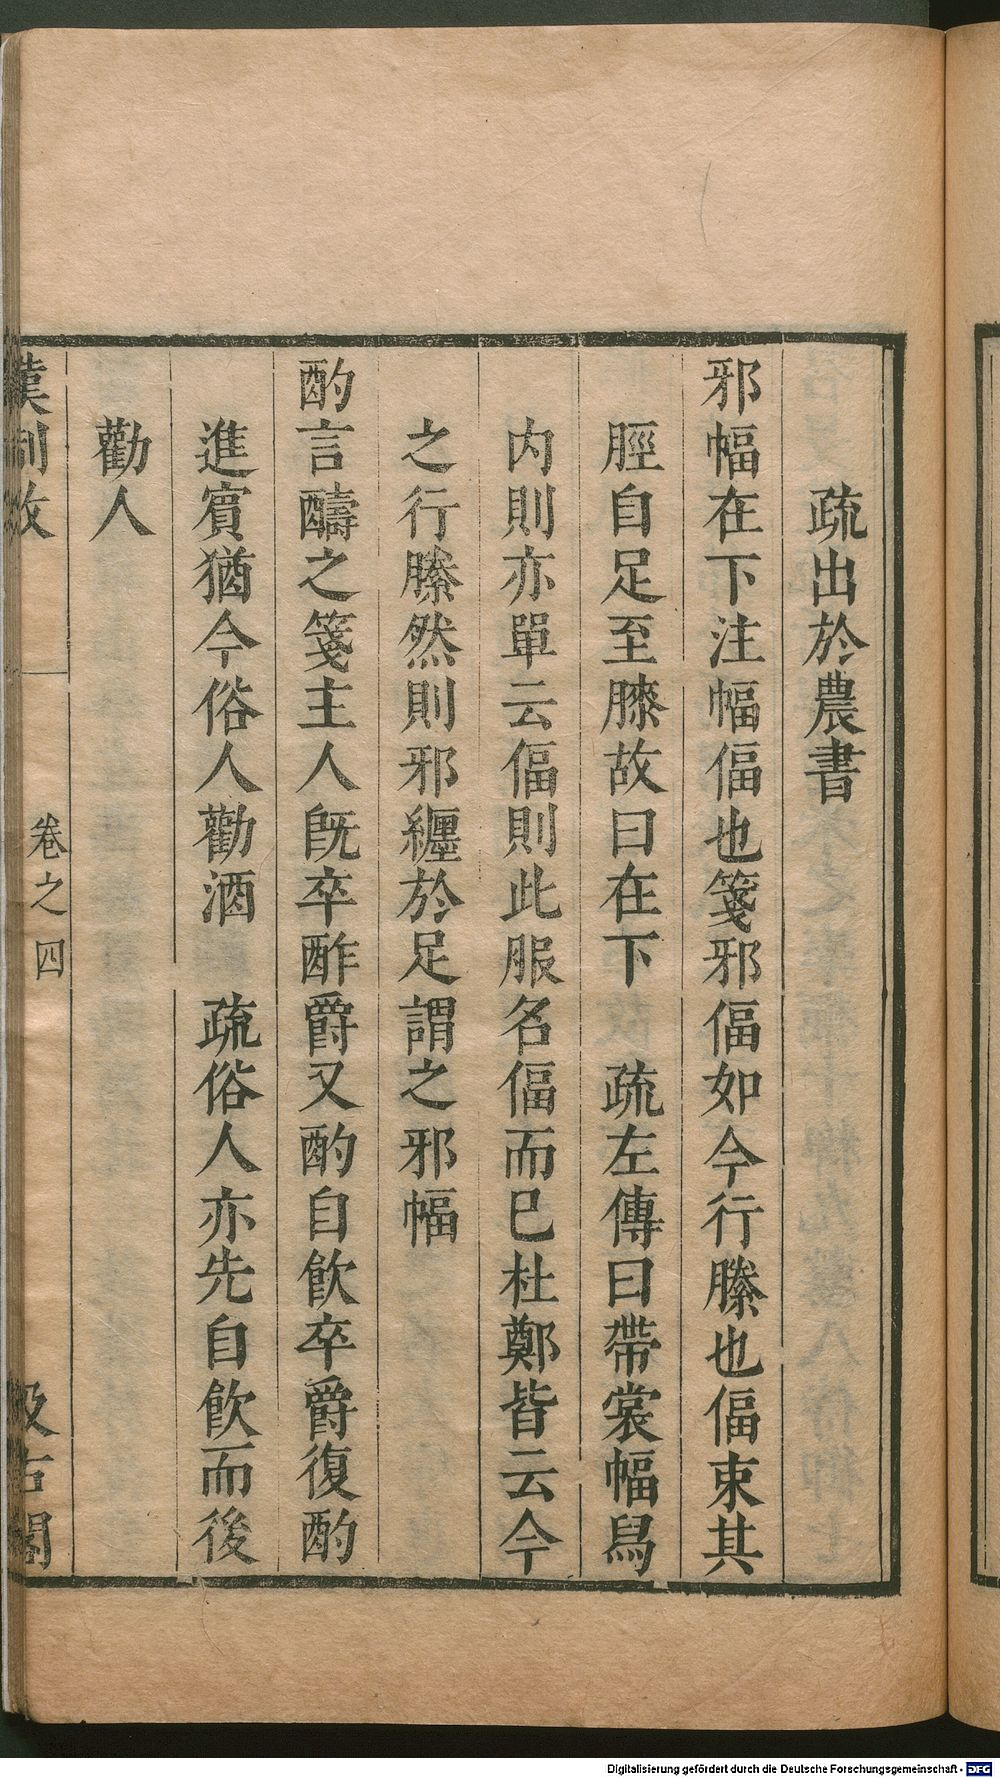 疏出於農書
邪幅在下注幅偪也箋邪偪如今行縢也偪束其
脛自足至膝故曰在下　疏左傳曰帶裳幅舄
内則亦單云偪則此服名偪而已杜鄭皆云今
之行縢然則邪纏於足謂之邪幅
酌言醻之箋主人旣卒酢爵又酌自飲卒爵復酌
進賓猶今俗人勸酒　疏俗人亦先自飲而後
勸人
漢制攷
卷之四
汲古閣
Digitalisierung gefördert durch die Deutsche Forschungsgemeinschaft - DFG